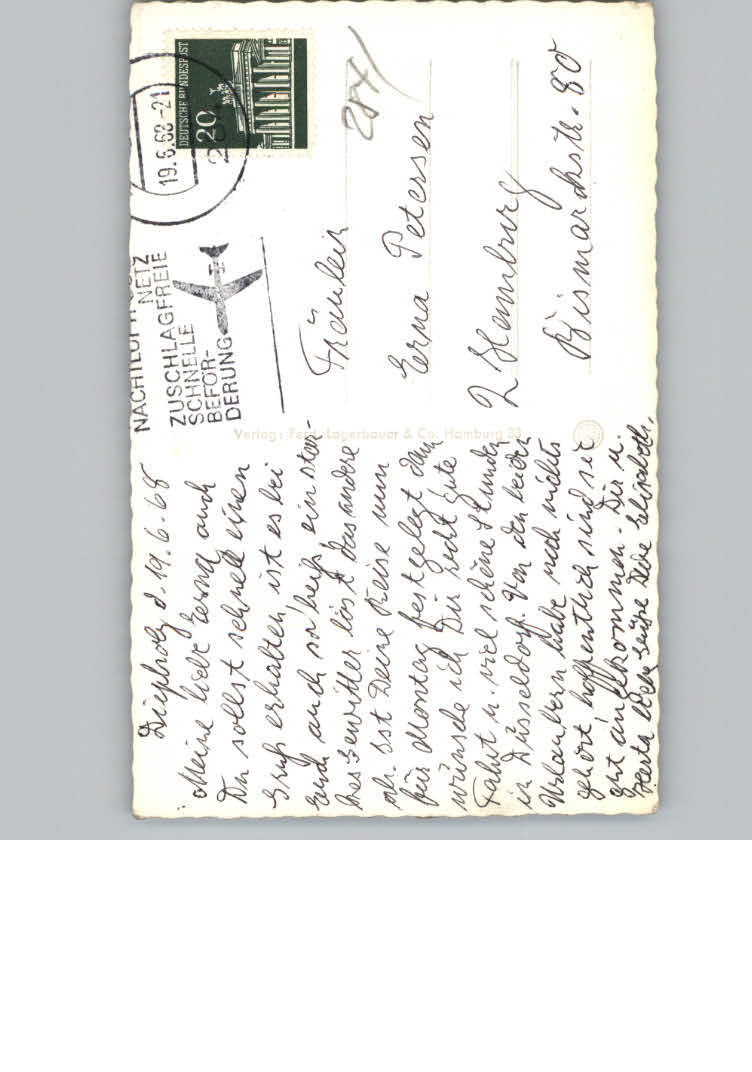 Diepholz d. 19.6.68
Meine liebe Erna, auch
Du sollst schnell einen
Gruß erhalten, ist es bei
Euch auch so heiß, ein star-
kes Gewitter löst das andere
ab. Ist Deine Reise nun
für Montag festgelegt dann
wünsche ich Dir recht gute
Fahrt u. viel schöne Stunden
in Düsseldorf. Von den beiden
Urlaubern habe noch nichts
gehört hoffentlich sind sie
gut angekommen. Dir u.
Herta Grüße Deine Elisabeth.
Verlag: Ferd. Lagerbauer & Co. Hamburg 33
NACHTLUFTPOST
NETZ
ZUSCHLAGFREIE
SCHNELLE
BEFÖR-
DERUNG
19.6.68-21
DEUTSCHE BUNDESPOST
20
284/
Fräulein
Erna Petersen
2 Hamburg
Bismarckstr. 80